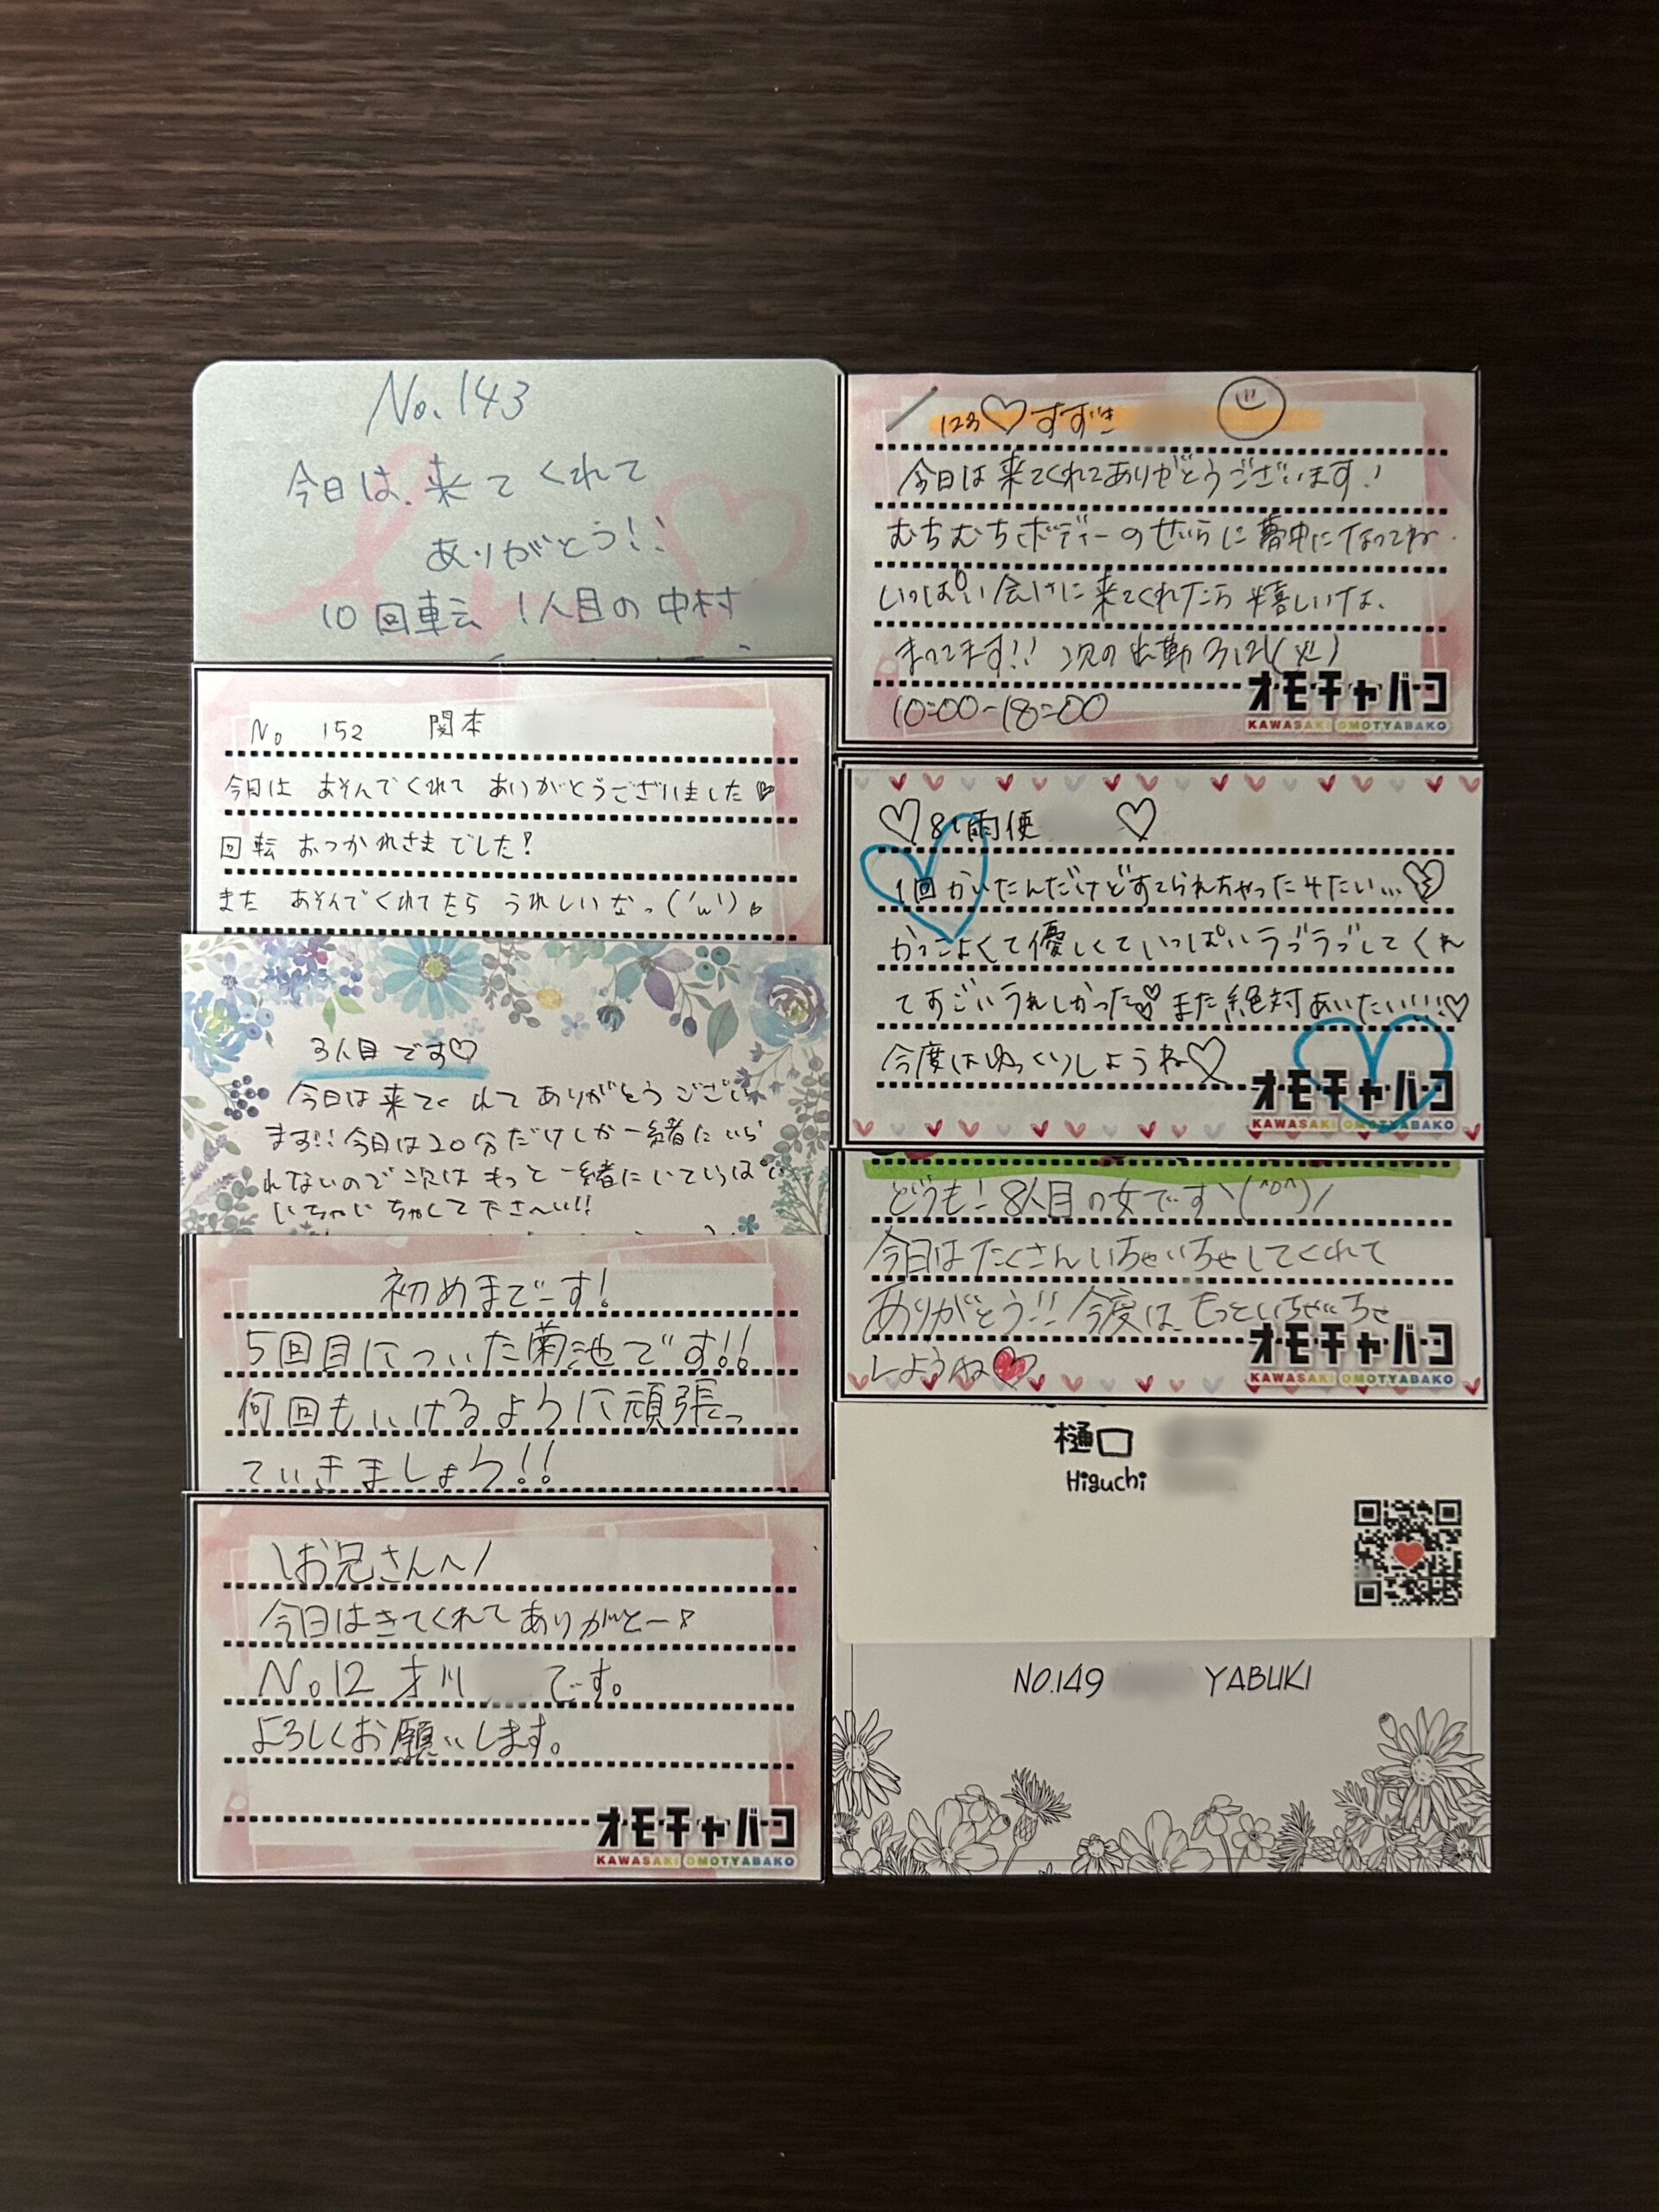 No.143
今日は、来てくれて
ありがとう!!
10回転 1人目の 中村
No 152 関本
今日は あそんでくれて ありがとうございました♡
回転 おつかれさまでした!
また あそんでくれたら うれしいなっ('ω')♡
3人目です♡
今日は来てくれてありがとうござい
ます!!今日は20分だけしか一緒にいら
れないので次はもっと一緒にいていっぱい
いちゃいちゃして下さ〜い!!
初めまでーす!
5回目についた菊池です!!
何回もいけるように頑張っ
ていきましょう!!
\お兄さん〜/
今日はきてくれてありがとー♪
No.12 才川 です。
よろしくお願いします。
オモチャバコ
KAWASAKI OMOTYABAKO
123♡すずき
今日は来てくれてありがとうございます!
むちむちボディーのせいらに夢中になってね
いっぱい会いに来てくれたら嬉しいな、
まってます!! 次の出勤 3/21(火)
10:00-18:00
オモチャバコ
KAWASAKI OMOTYABAKO
♡81雨便 ♡
1回かいたんだけどすてられちゃったみたい...💔
かっこよくて優しくていっぱいラブラブしてくれ
てすごいうれしかった♡また絶対あいたい!!!♡
今度はゆっくりしようね♡
オモチャバコ
KAWASAKI OMOTYABAKO
どうも!8人目の女です\(^o^)/
今日はたくさんいちゃいちゃしてくれて
ありがとう!!今度は、もっといちゃいちゃ
しようね♥
オモチャバコ
KAWASAKI OMOTYABAKO
樋口
Higuchi
NO.149 YABUKI